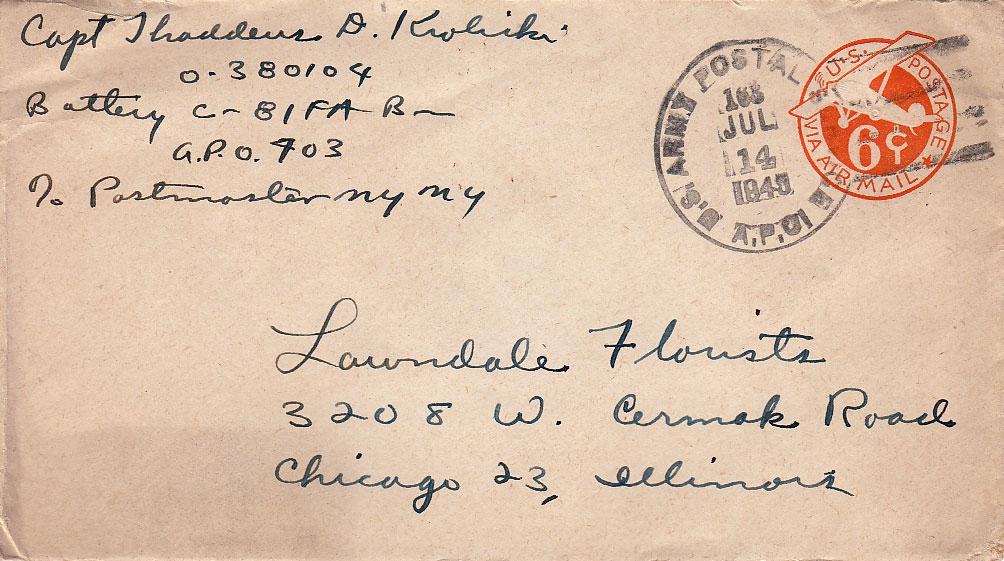 Capt Thaddeus D. Krolicki
O-380104
Battery C - 81 FA Bn
A.P.O. 403
% Postmaster NY NY
U.S. ARMY POSTAL
JUL
14
1945
A.P.O.
U.S. POSTAGE
6¢
VIA AIR MAIL
Lawndale Florists
3208 W. Cermak Road
Chicago 23, Illinois